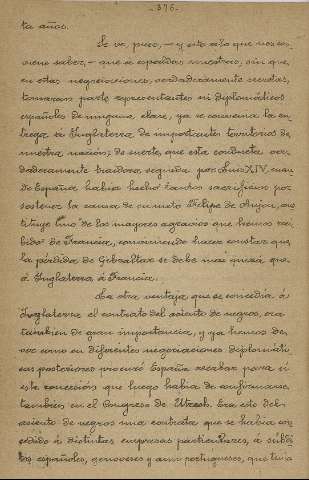 - 376. -
ta años.
Se ve, pues, - y esto es lo que nos con
viene saber, - que á espaldas nuestras, sin que
en estas negociaciones, verdaderamente secretas,
tomaran parte representantes ni diplomáticos
españoles de ninguna clase, ya se convenia la en
trega á Inglaterra de importantes territorios de
nuestra nación; de suerte, que esta conducta ver
daderamente traidora, seguida por Luis XIV, cuan
do España habia hecho tantos sacrificios por
sostener la causa de su nieto Felipe de Anjou, cons
tituye uno de los mayores agravios que hemos reci
bido de Francia, conviniendo hacer constar que
la pérdida de Gibraltar se debe mas quizá que
á Inglaterra, á Francia.
La otra ventaja que se concedia á
Inglaterra el contrato del asiento de negros, era
tambien de gran importancia, y ya hemos de
ver como en diferentes negociaciones diplomáti
cas posteriores procuró España recabar para si
esta concesión que luego habia de confirmarse
tambien en el Congreso de Utrech. Era esto del
asiento de negros una contrata que se habia con
cedido á distintas empresas particulares, á súbdi
tos españoles, genoveses y aun portugueses, que tenia